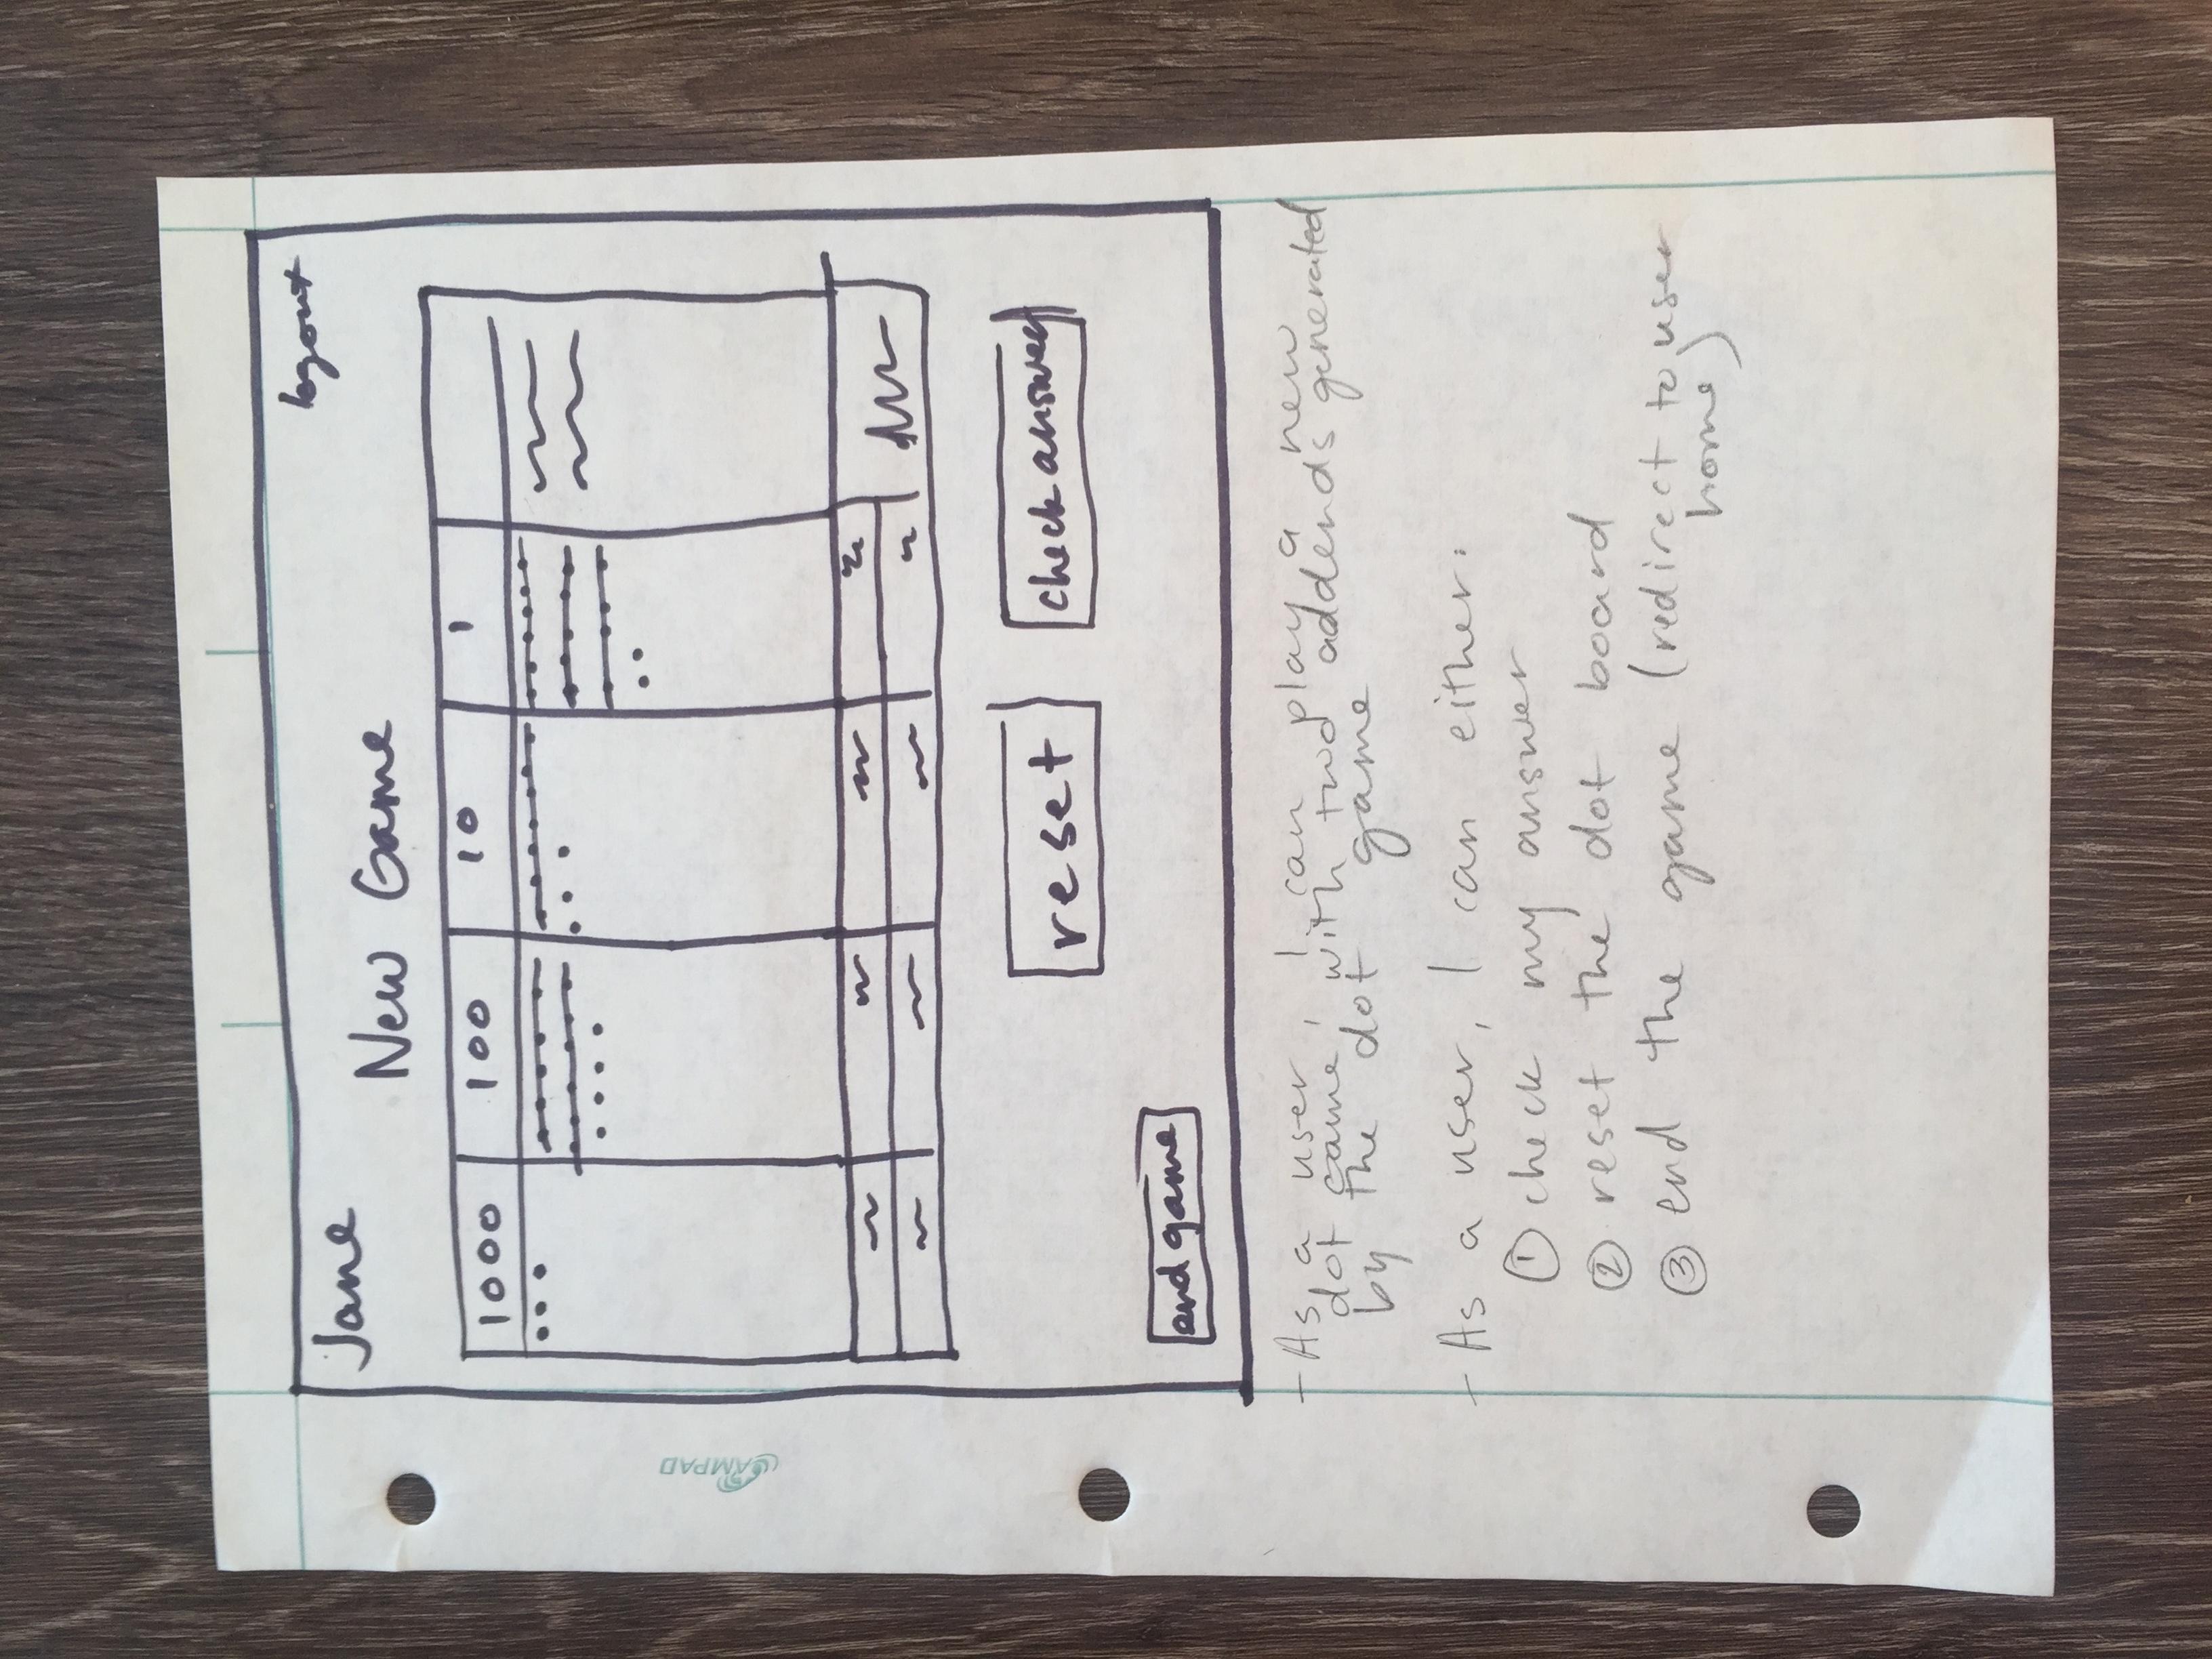 Jane
logout
New Game
1000 100 10 1
reset
check answer
end game
AMPAD
- As a user, I can play a new
dot game, with two addends generated
by the dot game
- As a user, I can either:
① check my answer
② reset the dot board
③ end the game (redirect to user
home)